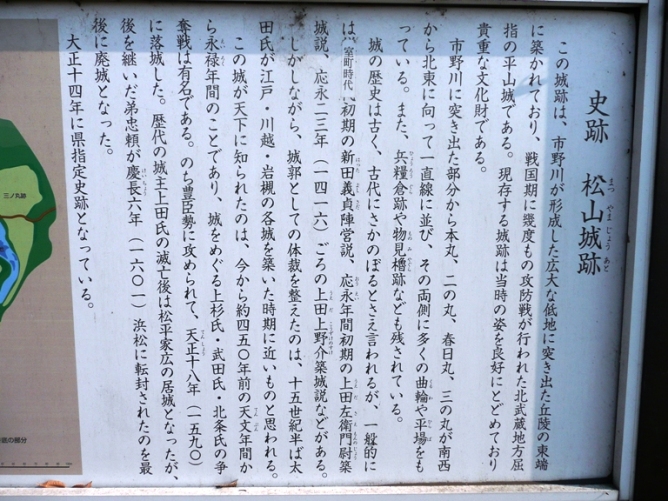 史跡 松山城跡
まつ やま じょう あと
この城跡は、市野川が形成した広大な低地に突き出た丘陵の東端
に築かれており、戦国期に幾度もの攻防戦が行われた北武蔵地方屈
指の平山城である。現存する城跡は当時の姿を良好にとどめており
貴重な文化財である。
市野川に突き出た部分から本丸、二の丸、春日丸、三の丸が南西
から北東に向って一直線に並び、その両側に多くの曲輪や平場をも
っている。また、兵糧倉跡や物見櫓跡なども残されている。
城の歴史は古く、古代にさかのぼるとさえ言われるが、一般的に
は、室町時代初期の新田義貞陣営説、応永年間初期の上田左衛門尉築
城説、応永二三年(一四一六)ごろの上田上野介築城説などがある。
しかしながら、城郭としての体裁を整えたのは、十五世紀半ば太
田氏が江戸・川越・岩槻の各城を築いた時期に近いものと思われる。
この城が天下に知られたのは、今から約四五〇年前の天文年間か
ら永禄年間のことであり、城をめぐる上杉氏・武田氏・北条氏の争
奪戦は有名である。のち豊臣勢に攻められて、天正十八年(一五九〇)
に落城した。歴代の城主上田氏の滅亡後は松平家広の居城となったが、
後を継いだ弟忠頼が慶長六年(一六〇一)浜松に転封されたのを最
後に廃城となった。
大正十四年に県指定史跡となっている。
三ノ丸跡
の部分